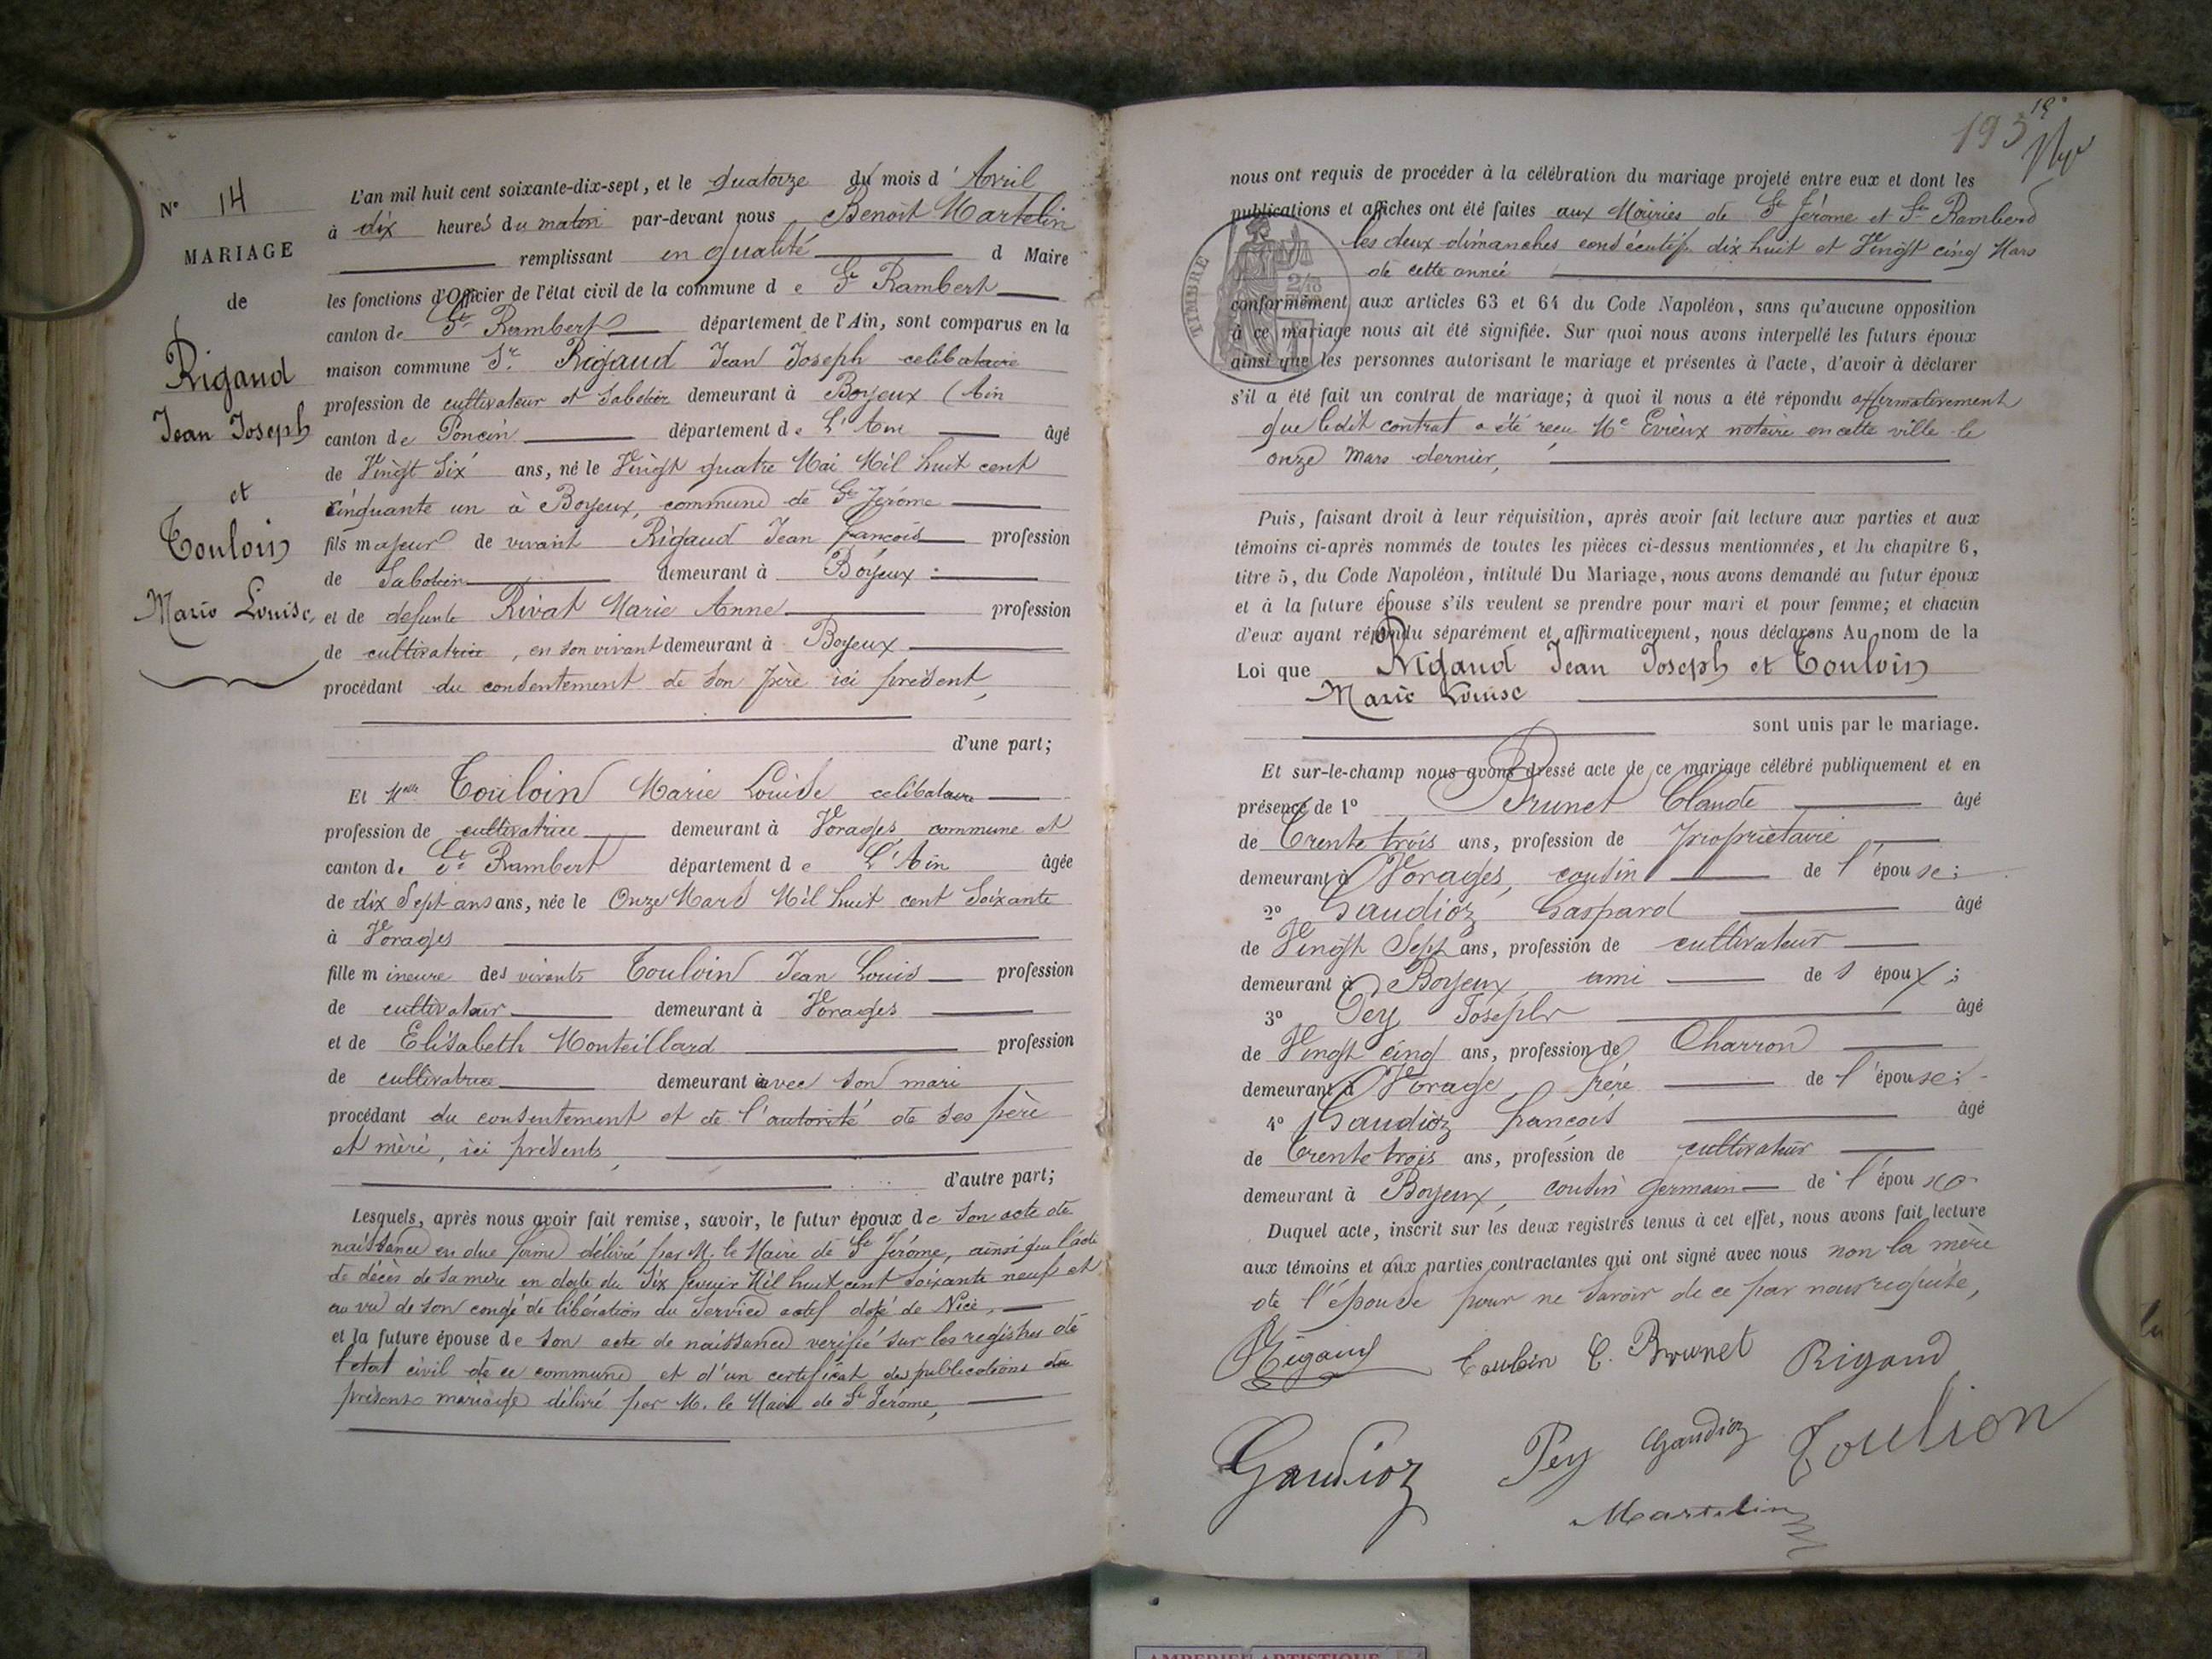 N° 14
MARIAGE
de
Rigaud
Jean Joseph
et
Touloin
Marie Louise,
L'an mil huit cent soixante-dix-sept, et le quatorze du mois d'Avril
à dix heures du matin par-devant nous Benoit Martelin
remplissant en qualité d Maire
les fonctions d'Officier de l'état civil de la commune de St Rambert
canton de St Rambert département de l'Ain, sont comparus en la
maison commune Sr. Rigaud Jean Joseph celibataire
profession de cultivateur et Sabotier demeurant à Boyeux (Ain
canton de Poncin département de L'Ain âgé
de Vingt Six ans, né le Vingt quatre Mai Mil huit cent
cinquante un à Boyeux, commune de St Jérome
fils majeur de vivant Rigaud Jean françois profession
de Sabotier demeurant à Boyeux :
et de defunte Rivat Marie Anne profession
de cultivatrice, en son vivant demeurant à Boyeux
procédant du consentement de son père ici présent,
d'une part;
Et Melle Touloin Marie Louise celibataire
profession de cultivatrice demeurant à Vorages commune et
canton de St Rambert département de L'Ain âgée
de dix Sept ans ans, née le Onze Mars Mil huit cent Soixante
à Vorages
fille mineure des vivants Touloin Jean Louis profession
de cultivateur demeurant à Vorages
et de Elisabeth Monteillard profession
de cultivatrice demeurant avec son mari
procédant du consentement et de l'autorité de ses père
et mère, ici présents,
d'autre part;
Lesquels, après nous avoir fait remise, savoir, le futur époux de Son acte de
naissance en due forme délivré par M. le Maire de St Jérome, ainsi que l'acte
de décès de sa mère en date du Six Mil huit cent soixante neuf et
au vu de son congé de libération du Service actif daté de Nice,
et la future épouse de son acte de naissance verifié sur les registres de
l'etat civil de ce commune et d'un certificat des publications du
présent mariage délivré par M. le Maire de St Jérome,
193
nous ont requis de procéder à la célébration du mariage projeté entre eux et dont les
publications et affiches ont été faites aux Mairies de St Jérome et St Rambert
les deux dimanches consécutifs dix huit et Vingt cinq Mars
de cette année
TIMBRE
conformément aux articles 63 et 64 du Code Napoléon, sans qu'aucune opposition
à ce mariage nous ait été signifiée. Sur quoi nous avons interpellé les futurs époux
ainsi que les personnes autorisant le mariage et présentes à l'acte, d'avoir à déclarer
s'il a été fait un contrat de mariage; à quoi il nous a été répondu affirmativement
que ledit contrat a été recu Me Evieux notaire en cette ville le
onze Mars dernier,
Puis, faisant droit à leur réquisition, après avoir fait lecture aux parties et aux
témoins ci-après nommés de toutes les pièces ci-dessus mentionnées, et du chapitre 6,
titre 5, du Code Napoléon, intitulé Du Mariage, nous avons demandé au futur époux
et à la future épouse s'ils veulent se prendre pour mari et pour femme; et chacun
d'eux ayant répondu séparément et affirmativement, nous déclarons Au nom de la
Loi que Rigaud Jean Joseph et Touloin
Marie Louise
sont unis par le mariage.
Et sur-le-champ nous avons dressé acte de ce mariage célébré publiquement et en
présence de 1° Brunet Claude âgé
de Trente trois ans, profession de propriétaire
demeurant à Vorages, cousin de l'épouse;
2° Gaudioz Gaspard âgé
de Vingt Sept ans, profession de cultivateur
demeurant à Boyeux ami de l époux;
3° Pey Joseph âgé
de Vingt cinq ans, profession de Charron
demeurant à Vorage, frère de l'épouse;
4° Gaudioz françois âgé
de Trente trois ans, profession de cultivateur
demeurant à Boyeux, cousin germain de l'épou
Duquel acte, inscrit sur les deux registres tenus à cet effet, nous avons fait lecture
aux témoins et aux parties contractantes qui ont signé avec nous non la mère
de l'épouse pour ne savoir de ce par nous requise,
Rigaud Touloin C. Brunet Rigaud
Gaudioz Pey Gaudioz Toulion
Martelin
AMBERIEU ARTISTIQUE